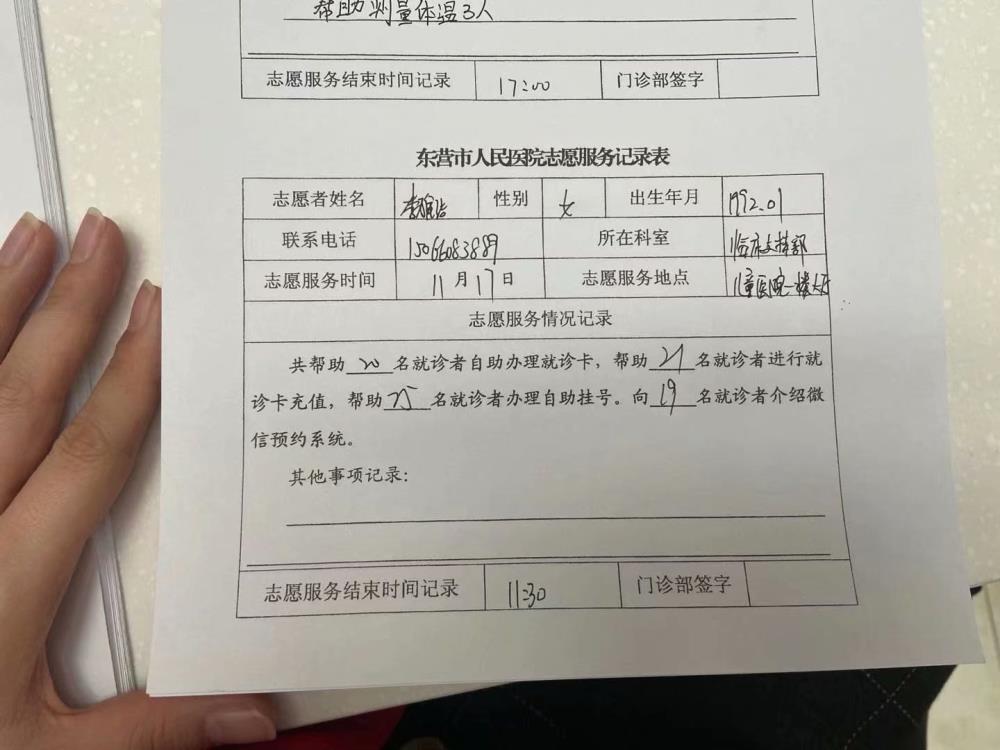 帮助测量体温3人
志愿服务结束时间记录 17:00 门诊部签字
东营市人民医院志愿服务记录表
志愿者姓名 李 性别 女 出生年月 1992.01
联系电话 15066083889 所在科室 临床支持部
志愿服务时间 11月17日 志愿服务地点 儿童医院一楼大厅
志愿服务情况记录
共帮助 20 名就诊者自助办理就诊卡，帮助 21 名就诊者进行就
诊卡充值，帮助 25 名就诊者办理自助挂号。向 19 名就诊者介绍微
信预约系统。
其他事项记录：
志愿服务结束时间记录 11:30 门诊部签字